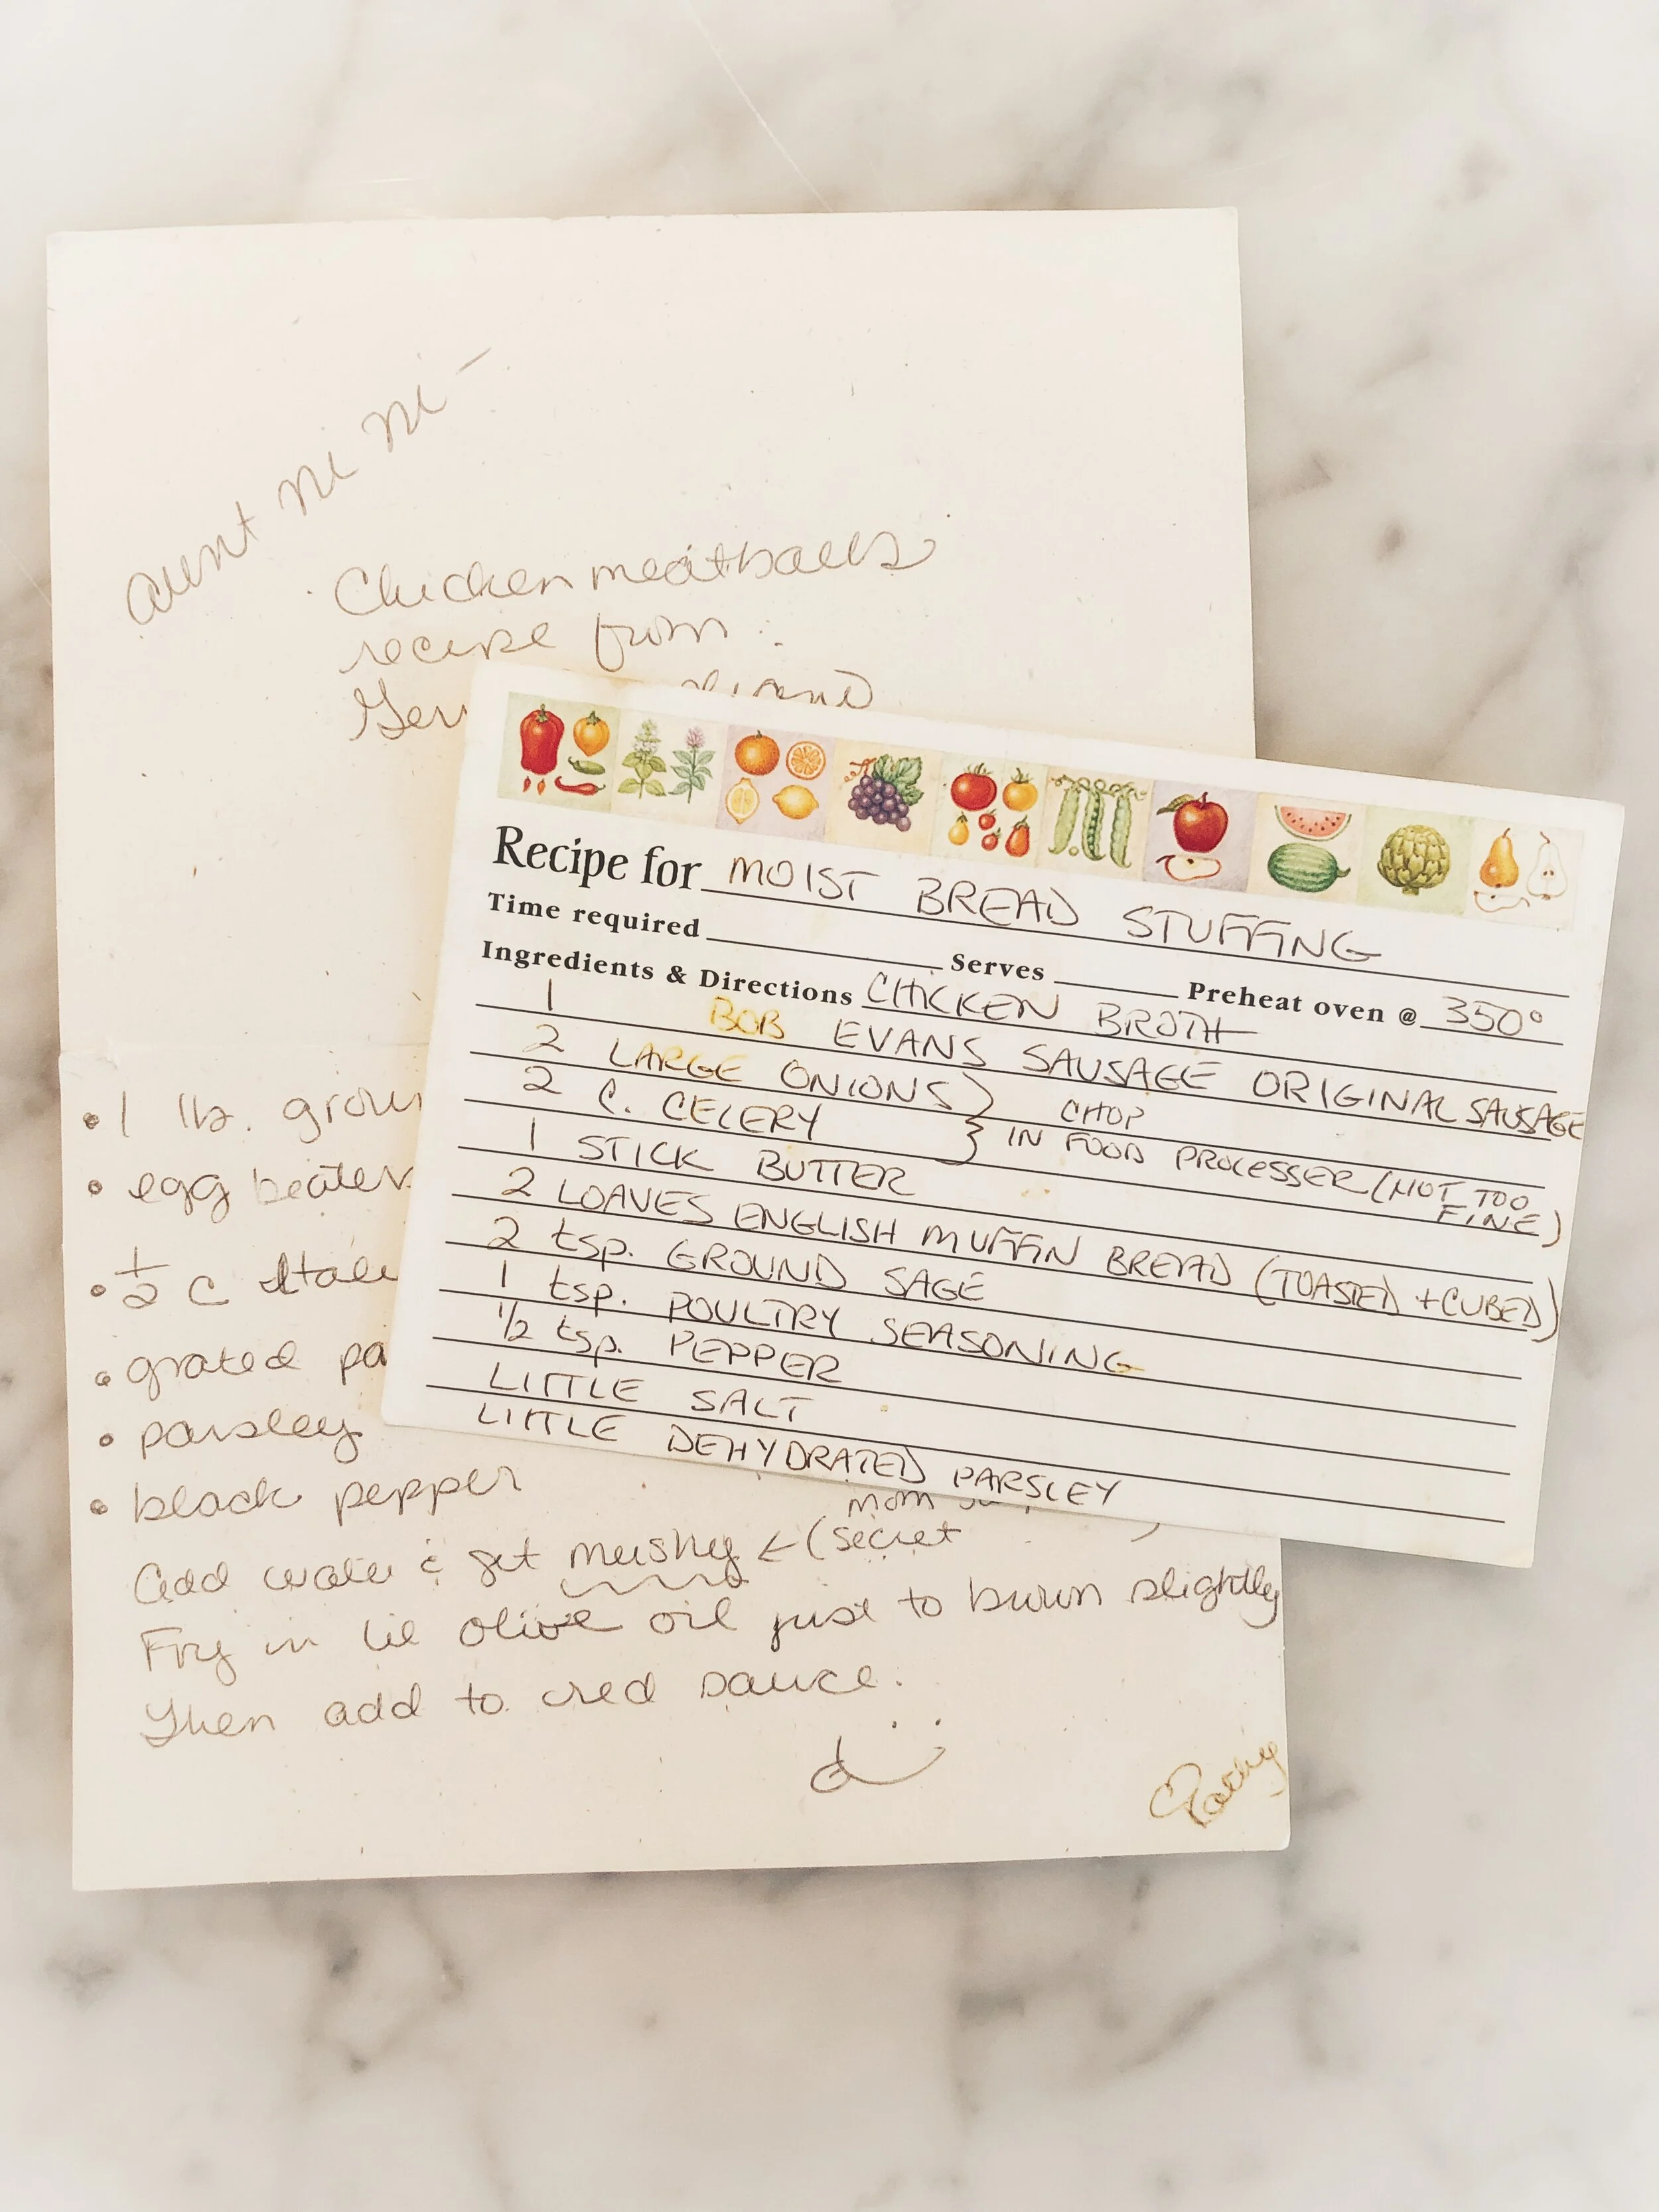 Aunt Ni Ni -
Chicken meatballs
recipe from:
Recipe for MOIST BREAD STUFFING
Time required Serves Preheat oven @ 350°
Ingredients & Directions CHICKEN BROTH
1 BOB EVANS SAUSAGE ORIGINAL SAUSAGE
2 LARGE ONIONS } CHOP
2 C. CELERY } IN FOOD PROCESSER (NOT TOO FINE)
1 STICK BUTTER
2 LOAVES ENGLISH MUFFIN BREAD (TOASTED + CUBED)
2 tsp. GROUND SAGE
1 tsp. POULTRY SEASONING
1/2 tsp. PEPPER
LITTLE SALT
LITTLE DEHYDRATED PARSLEY
• 1 lb.
• egg beaters
• 1/2 c
• grated
• parsley
• black pepper
mom
Add water & get mushy ← (secret
Fry in lil olive oil just to burn slightly
Then add to red sauce.